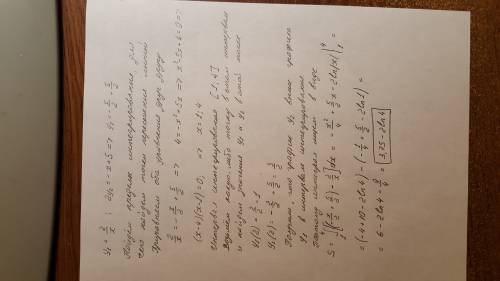 y₁ = 2/x ; 2y₂ = -x+5 => y₂ = -x/2 + 5/2
Найдем пределы интегрирования, для
чего найдем точки пересечения линий
Приравняем оба уравнения друг другу
2/x = -x/2 + 5/2 => 4 = -x²+5x => x²-5x+4=0 =>
(x-4)(x-1)=0, => x=1; 4
Интервал интегрирования [1; 4]
Возьмем какую-либо точку в этом интервале
и найдем значения y₁ и y₂ в этой точке
y₁(2) = 2/2 = 1
y₂(2) = -2/2 + 5/2 = 3/2
Получим, что график y₂ выше графика
y₁ в интервале интегрирования
Поэтому интеграл ищем в виде
S = ∫₁⁴[(-x/2 + 5/2) - 2/x]dx = -x²/4 + 5/2 x - 2ln|x| |₁⁴ =
= (-4+10-2ln4) - (-1/4 + 5/2 - 2ln1) =
= 6 - 2ln4 - 9/4 = 3,75 - 2ln4